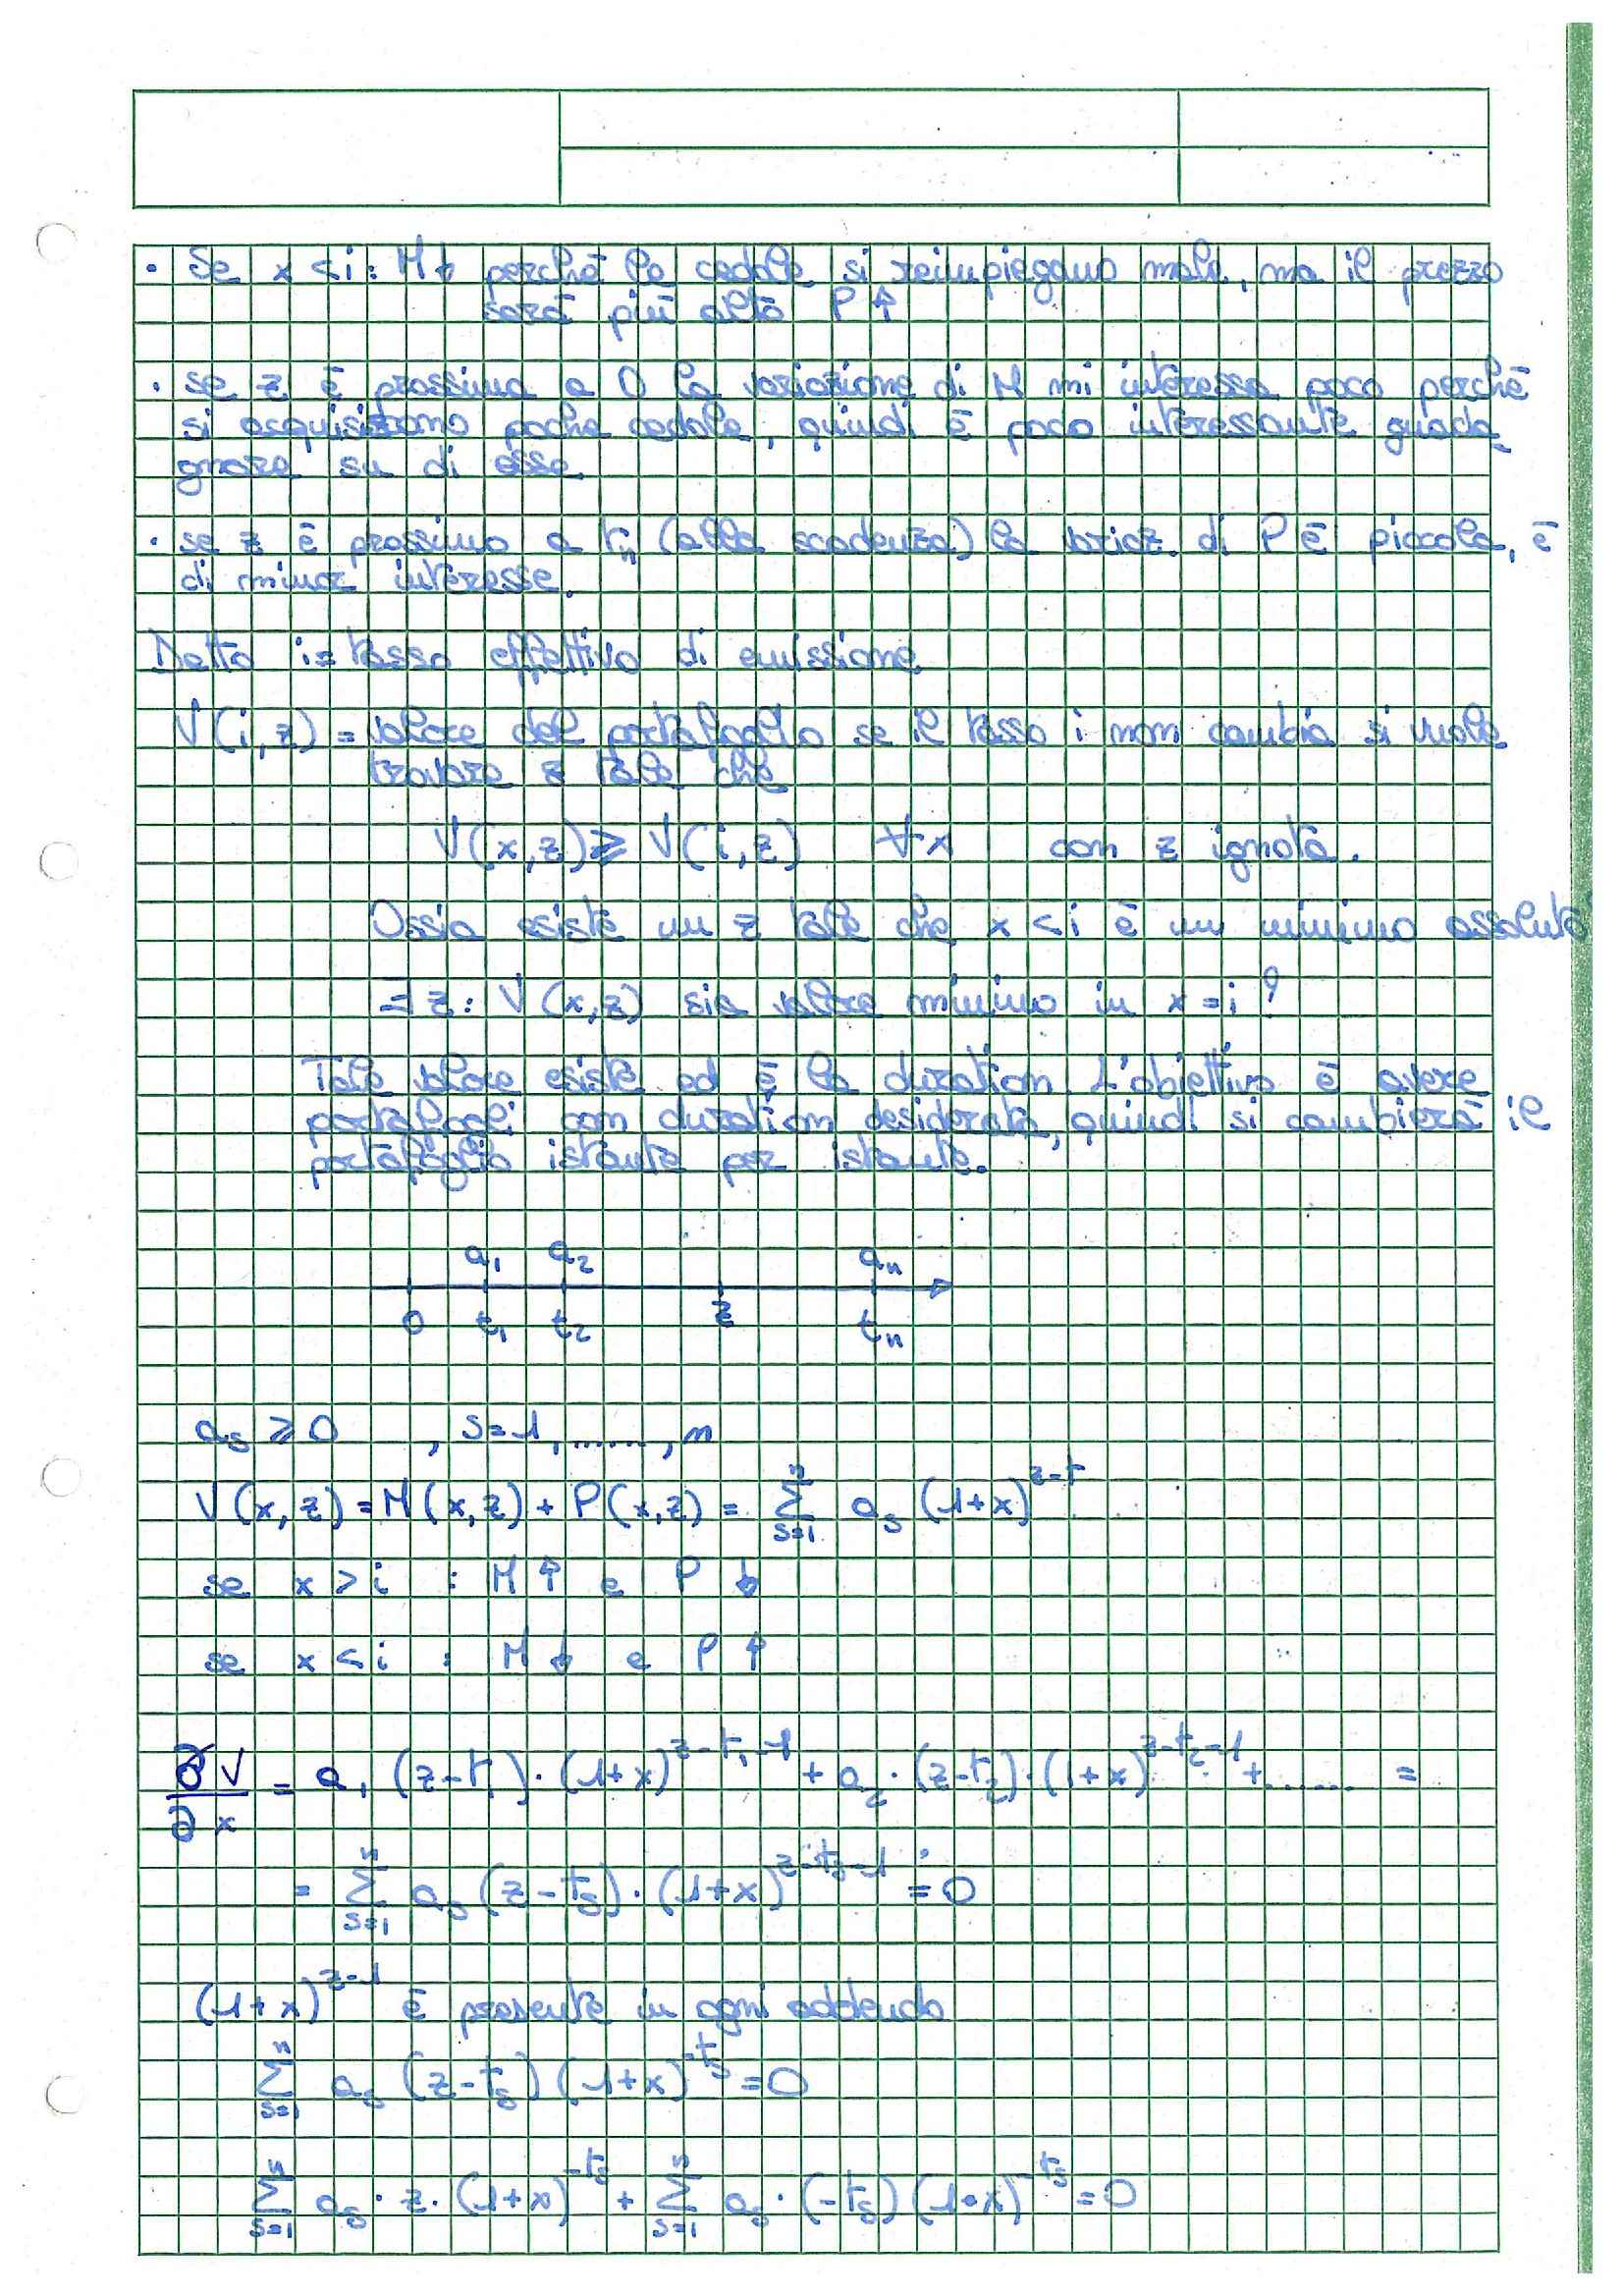 · Se x < i : M↓ perchè le cedole si reimpiegano male, ma il prezzo
sarà più alto P↑
· se z è prossimo a 0 la variazione di M mi interessa poco perchè
si acquisiscono poche cedole, quindi è poco interessante guada
gnare su di esse.
· se z è prossimo a tn (alla scadenza) la variaz. di P è piccola, è
di minor interesse.
Detto i = tasso effettivo di emissione
V(i,z) = valore del portafoglio se il tasso i non cambia si vuole
trovare z tale che
V(x,z) ⩾ V(i,z) ∀x con z ignota.
Ossia esiste un z tale che x < i è un minimo assoluto
∃ z : V(x,z) sia valore minimo in x = i ?
Tale valore esiste ed è la duration. L'obiettivo è avere
portafogli con duration desiderata, quindi si cambierà il
portafoglio istante per istante.
a1 a2 an
0 t1 t2 z tn
as ⩾ 0 , s=1, ......, n
V(x,z) = M(x,z) + P(x,z) = Σ_{s=1}^{n} as (1+x)^{z-t}
se x > i : M↑ e P↓
se x < i : M↓ e P↑
∂V/∂x = a1 (z-t1)·(1+x)^{z-t1-1} + a2·(z-t2)·(1+x)^{z-t2-1} + ...... =
= Σ_{s=1}^{n} as (z-ts)·(1+x)^{z-ts-1} = 0
(1+x)^{z-1} è presente in ogni addendo
Σ_{s=1}^{n} as (z-ts) (1+x)^{-ts} = 0
Σ_{s=1}^{n} as · z · (1+x)^{-ts} + Σ_{s=1}^{n} as · (-ts) (1+x)^{-ts} = 0